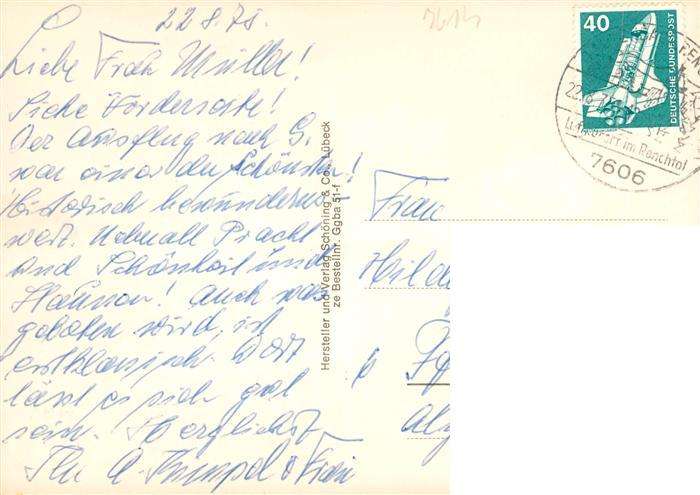 22.8.78.
Liebe Frau Müller!
Siehe Vorderseite!
Der Ausflug nach G.
war einer der Schönsten!
Historisch bewunderns
wert. Überall Pracht
und Schönheit und
Staunen! Auch was
geboten wird, ist
erstklassisch. Dort
lässt es sich gut
sein. Herzlichst
Ihr A. Kumpel & Frau
Hersteller und Verlag Schöning & Co., Lübeck
ze Bestellnr. Ggba 51-f
40
DEUTSCHE BUNDESPOST
22.8.7
Luftkurort im Renchtal
7606
Frau
Hilde